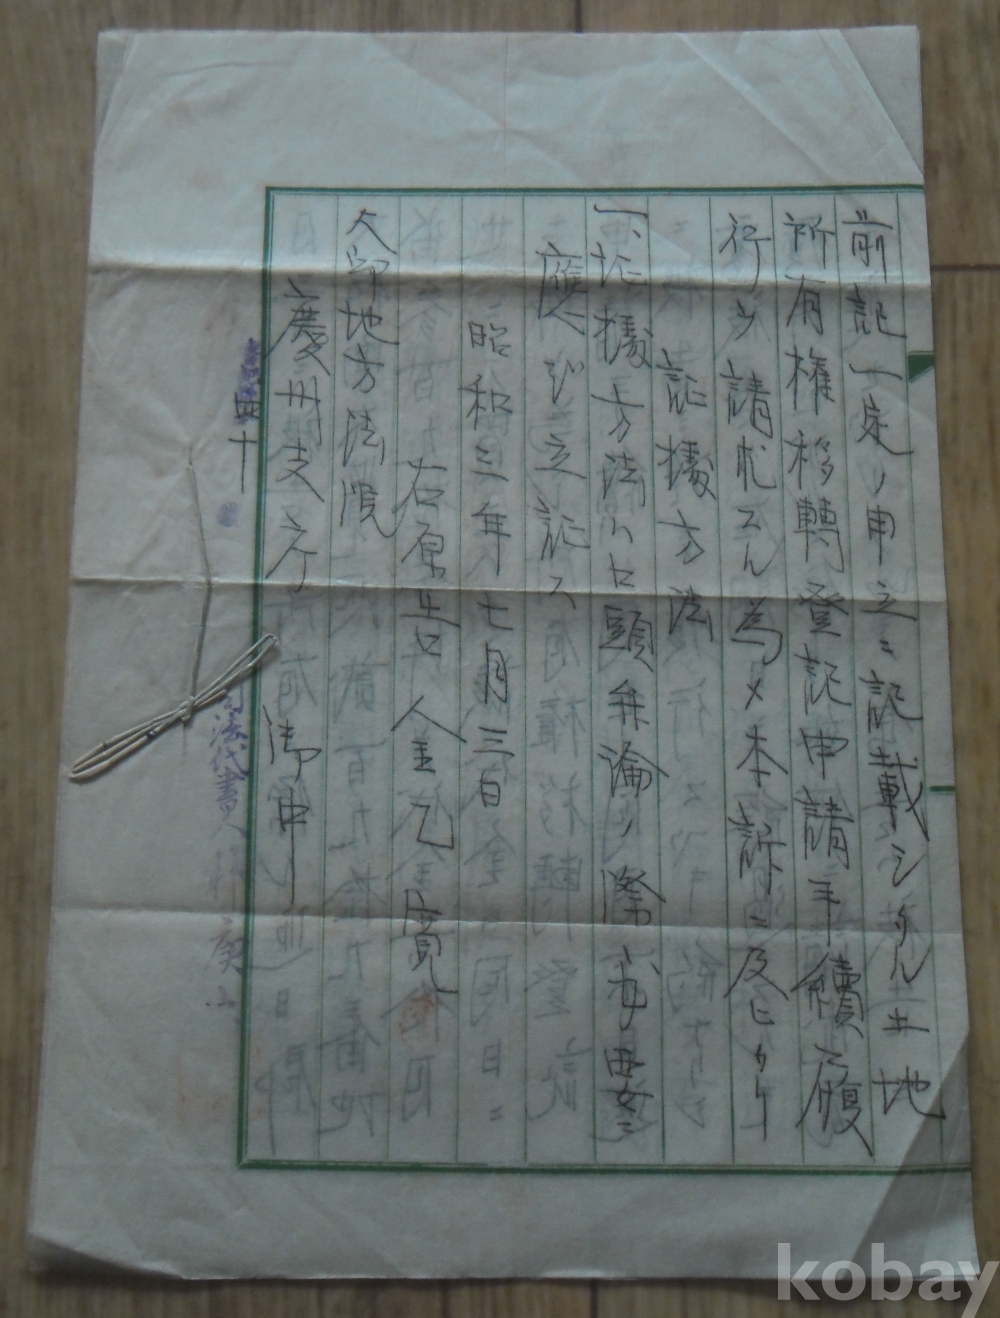 前記一定ノ申立ニ記載シタル土地
所有権移轉登記申請手續履
行ヲ請求スル為メ本訴ニ及ヒタリ
証據方法
一、証據方法ハ口頭弁論ノ際必要ニ
應ジ立証ス
昭和三年七月三日
右原告 金
大邱地方法院
慶州支庁 御中
四十
司法代書人
kobay